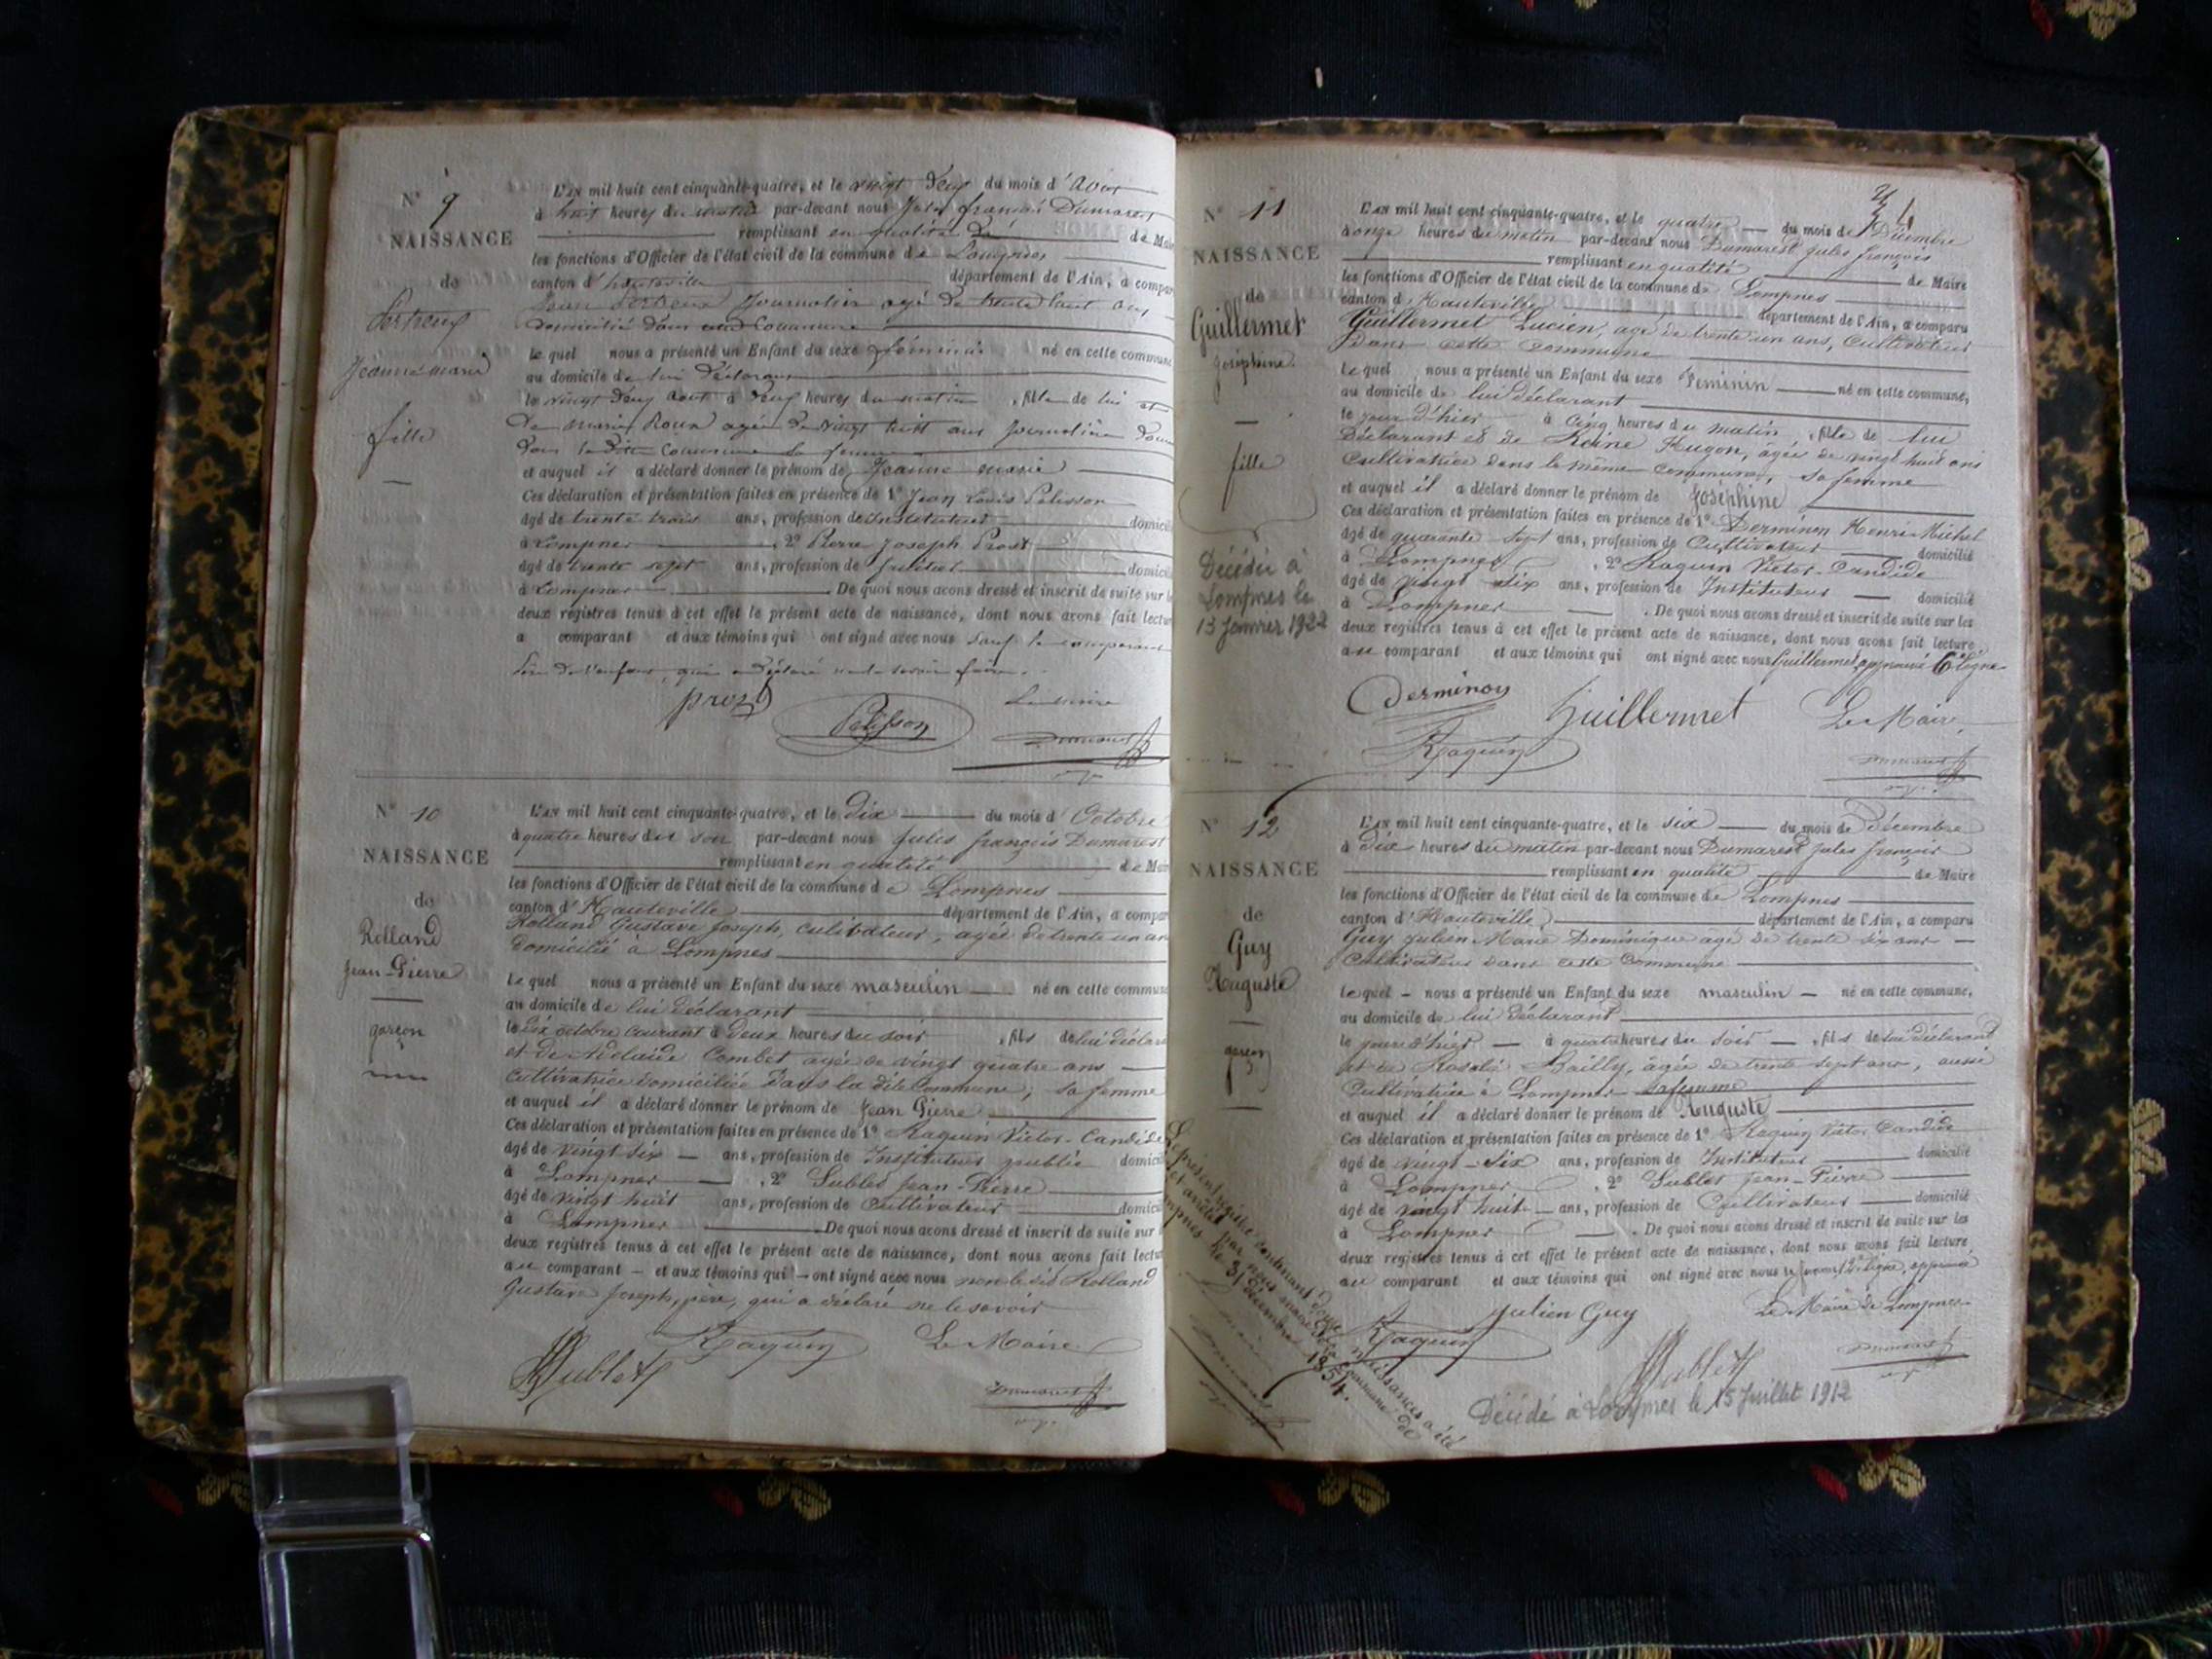 N° 9
NAISSANCE
de
Pertreux
Jeanne marie
fille
L'an mil huit cent cinquante-quatre, et le vingt deux du mois d'Aout
à huit heures du matin par-devant nous Jules françois Dumarest
remplissant en qualité de de Maire
les fonctions d'Officier de l'état civil de la commune de Lompnes
canton d'hauteville département de l'Ain, a compar
Jean Pertreux Journalier agé de trente huit ans
domicilié dans Commune
Le quel nous a présenté un Enfant du sexe féminin né en cette commune
au domicile de lui déclarant
le vingt deux aout à deux heures du matin , fille de lui et
De marie Roux agée de vingt huit ans journalière
dans la dite Commune sa femme
et auquel il a déclaré donner le prénom de Jeanne marie
Ces déclaration et présentation faites en présence de 1° Jean Louis Pelisson
âgé de trente trois ans, profession de Instituteur domicil
à Lompnes , 2° Pierre Joseph Prost
âgé de trente sept ans, profession de domicil
à Lompnes De quoi nous avons dressé et inscrit de suite sur l
deux registres tenus à cet effet le présent acte de naissance, dont nous avons fait lectu
a comparant et aux témoins qui ont signé avec nous sauf le comparant
père de l'enfant, qui a déclaré ne le savoir faire.
prost
Pelisson
Le maire
Dumarest
N° 10
NAISSANCE
de
Rolland
Jean-Pierre
garçon
L'an mil huit cent cinquante-quatre, et le dix du mois d'Octobre
à quatre heures du soir par-devant nous Jules françois Dumarest
remplissant en qualité de Mai
les fonctions d'Officier de l'état civil de la commune de Lompnes
canton d'Hauteville département de l'Ain, a compar
Rolland Gustave Joseph, cultivateur, agé de trente un an
Domicilié à Lompnes
Le quel nous a présenté un Enfant du sexe masculin né en cette commune
au domicile de lui déclarant
le dix octobre courant à deux heures du soir , fils de lui déclara
et de Adelaide Combet agée de vingt quatre ans
cultivatrice domiciliée dans la dite Commune, sa femme
et auquel il a déclaré donner le prénom de Jean Pierre
Ces déclaration et présentation faites en présence de 1° Raquin Victor-Candide
âgé de vingt six ans, profession de Instituteur public domicil
à Lompnes , 2° Sublet Jean-Pierre
âgé de vingt huit ans, profession de Cultivateur domicil
à Lompnes De quoi nous avons dressé et inscrit de suite sur l
deux registres tenus à cet effet le présent acte de naissance, dont nous avons fait lectu
au comparant et aux témoins qui ont signé avec nous non le dit Rolland
Gustave Joseph, père, qui a déclaré ne le savoir
Sublet
Raquin
Le Maire
Dumarest
N° 11
NAISSANCE
de
Guillermet
Joséphine
fille
Décédée à
Lompnes le
13 Janvier 1922
L'an mil huit cent cinquante-quatre, et le quatre du mois de Décembre
à onze heures du matin par-devant nous Dumarest Jules françois
remplissant en qualité de Maire
les fonctions d'Officier de l'état civil de la commune de Lompnes
canton d'Hauteville département de l'Ain, a comparu
Guillermet Lucien, agé de trente un ans, Cultivateur
dans cette commune
Le quel nous a présenté un Enfant du sexe Féminin né en cette commune,
au domicile de lui déclarant
le jour d'hier à Cinq heures du matin , fille de lui
Déclarant et de Reine Hugon, agée de vingt huit ans
Cultivatrice dans la même commune, sa femme
et auquel il a déclaré donner le prénom de Joséphine
Ces déclaration et présentation faites en présence de 1° Derminon Henri Michel
âgé de quarante sept ans, profession de Cultivateur domicilié
à Lompnes , 2° Raquin Victor-Candide
âgé de vingt six ans, profession de Instituteur domicilié
à Lompnes . De quoi nous avons dressé et inscrit de suite sur les
deux registres tenus à cet effet le présent acte de naissance, dont nous avons fait lecture
au comparant et aux témoins qui ont signé avec nous Guillermet, approuvé 6e ligne
Derminon
Guillermet
Le Maire
Raquin
Dumarest
N° 12
NAISSANCE
de
Guy
Auguste
garçon
L'an mil huit cent cinquante-quatre, et le six du mois de Décembre
à dix heures du matin par-devant nous Dumarest Jules françois
remplissant en qualité de Maire
les fonctions d'Officier de l'état civil de la commune de Lompnes
canton d'Hauteville département de l'Ain, a comparu
Guy Julien Marie Dominique agé de trente six ans
Cultivateur dans cette Commune
Le quel nous a présenté un Enfant du sexe masculin né en cette commune,
au domicile de lui déclarant
le jour d'hier à quatre heures du soir , fils de lui déclarant
et de Rosalie Bailly, agée de trente sept ans, aussi
Cultivatrice à Lompnes sa femme
et auquel il a déclaré donner le prénom de Auguste
Ces déclaration et présentation faites en présence de 1° Raquin Victor Candide
âgé de vingt-six ans, profession de Instituteur domicilié
à Lompnes , 2° Sublet Jean-Pierre
âgé de vingt huit ans, profession de Cultivateur domicilié
à Lompnes . De quoi nous avons dressé et inscrit de suite sur les
deux registres tenus à cet effet le présent acte de naissance, dont nous avons fait lecture
au comparant et aux témoins qui ont signé avec nous 12e ligne, approuvé
Julien Guy
Le Maire de Lompnes
Raquin
Sublet
Dumarest
Décédé à Lompnes le 15 Juillet 1912
Le présent registre contenant douze naissances a été
arrêté par nous maire de la Commune de
Lompnes le 31 décembre 1854.